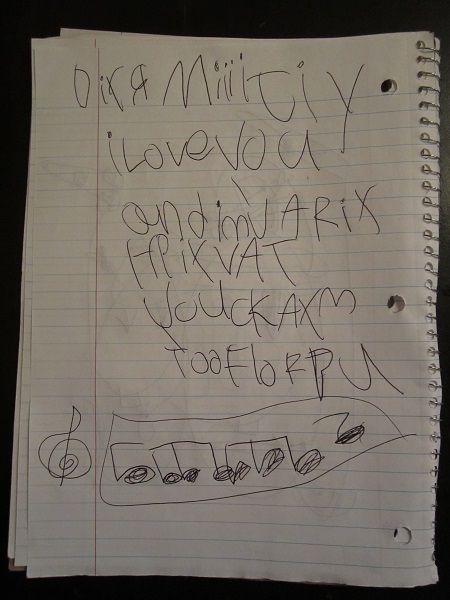 DiRA Miiitiy
i Love you
and im VARiX
HPiXVAT
YOUCKAXM
TOaFlorPU